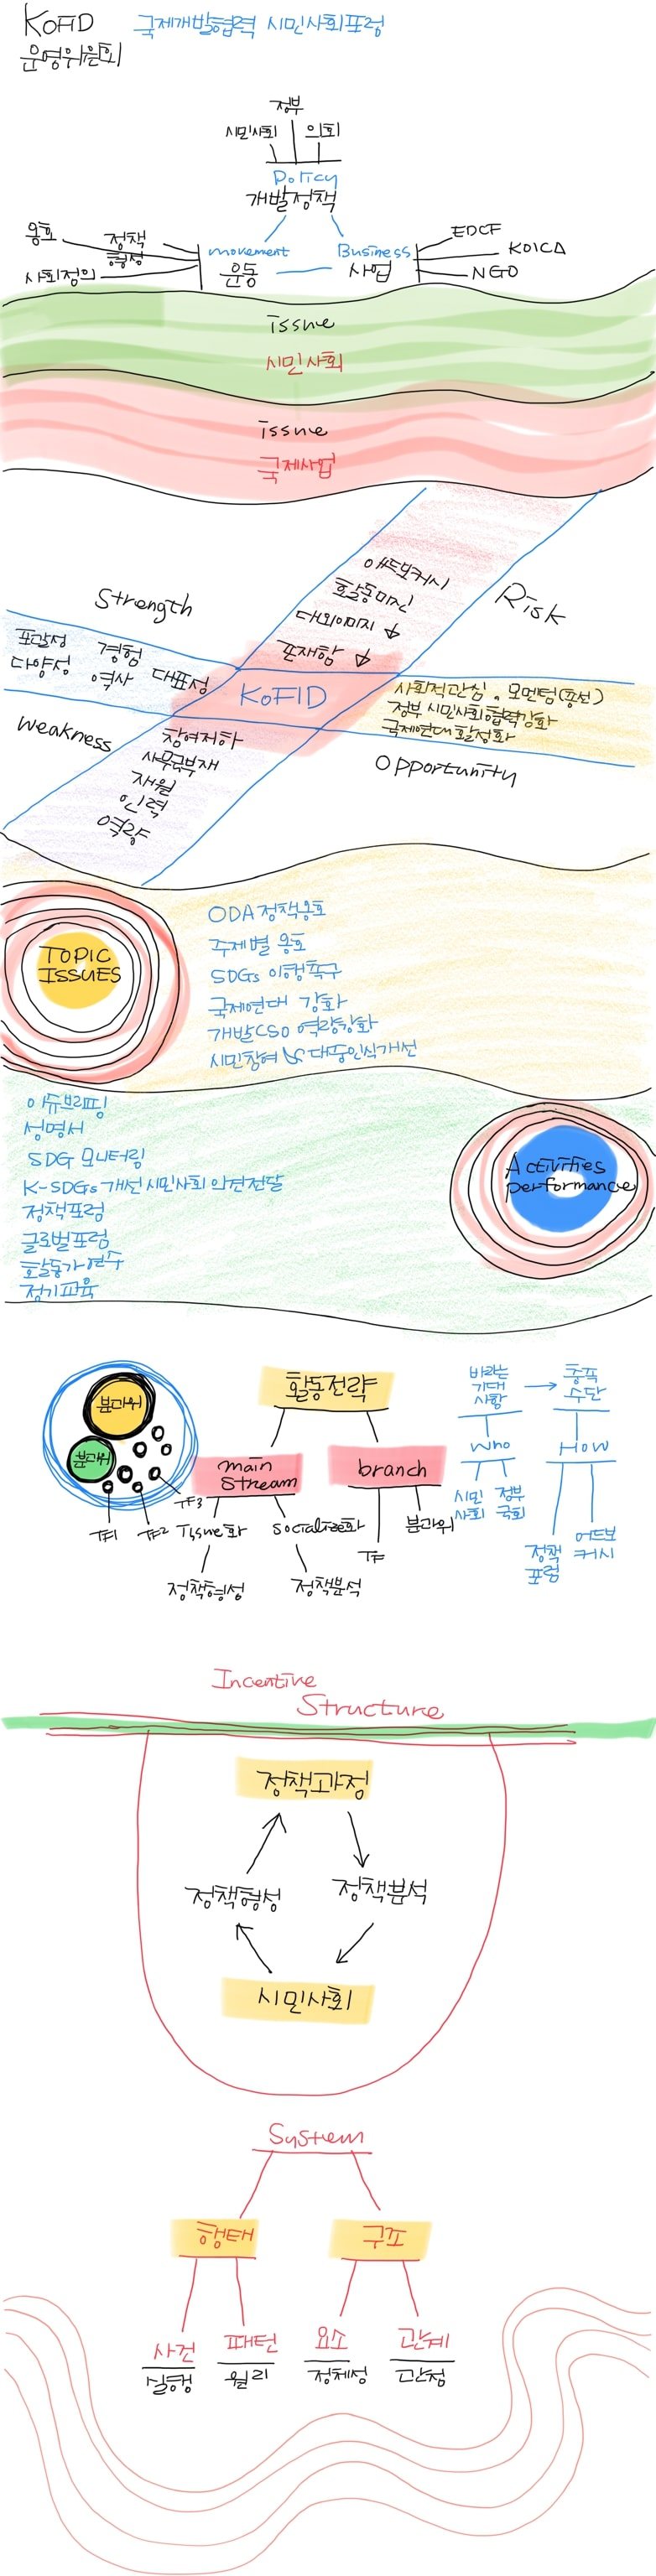 KOFID 국제개발협력 시민사회포럼
운영위원회
정부
시민사회 의회
Policy
개발정책
옹호 정책
형성
사회정의
movement
운동
Business
사업
EDCF
KOICA
NGO
issue
시민사회
issue
국제사업
Strength
Risk
애드보커시
활동미진
대외이미지 ↓
존재함 ↓
포괄성 경험
다양성 역사 대표성
KoFID
사회적관심, 모멘텀(풍선)
정부 시민사회협력강화
국제연대 활성화
Weakness
참여저하
사무국부재
재원
인력
역량
Opportunity
TOPIC
ISSUES
ODA 정책옹호
주제별 옹호
SDGs 이행촉구
국제연대 강화
개발CSO 역량강화
시민참여 & 대중인식개선
이슈브리핑
성명서
SDG 모니터링
K-SDGs 개선 시민사회 의견전달
정책포럼
글로벌포럼
활동가연수
정기교육
Activities
performance
분과위
분과위
TF1
TF2
TF3
활동전략
main
stream
branch
issue화
socialize화
정책형성
정책분석
TF
분과위
바라는
기대
사항
→
충족
수단
Who
How
시민
사회
정부
국회
정책
포럼
어드보
커시
Incentive
Structure
정책과정
정책형성
정책분석
시민사회
System
행태
구조
사건
패턴
요소
관계
실행
원리
정체성
관점